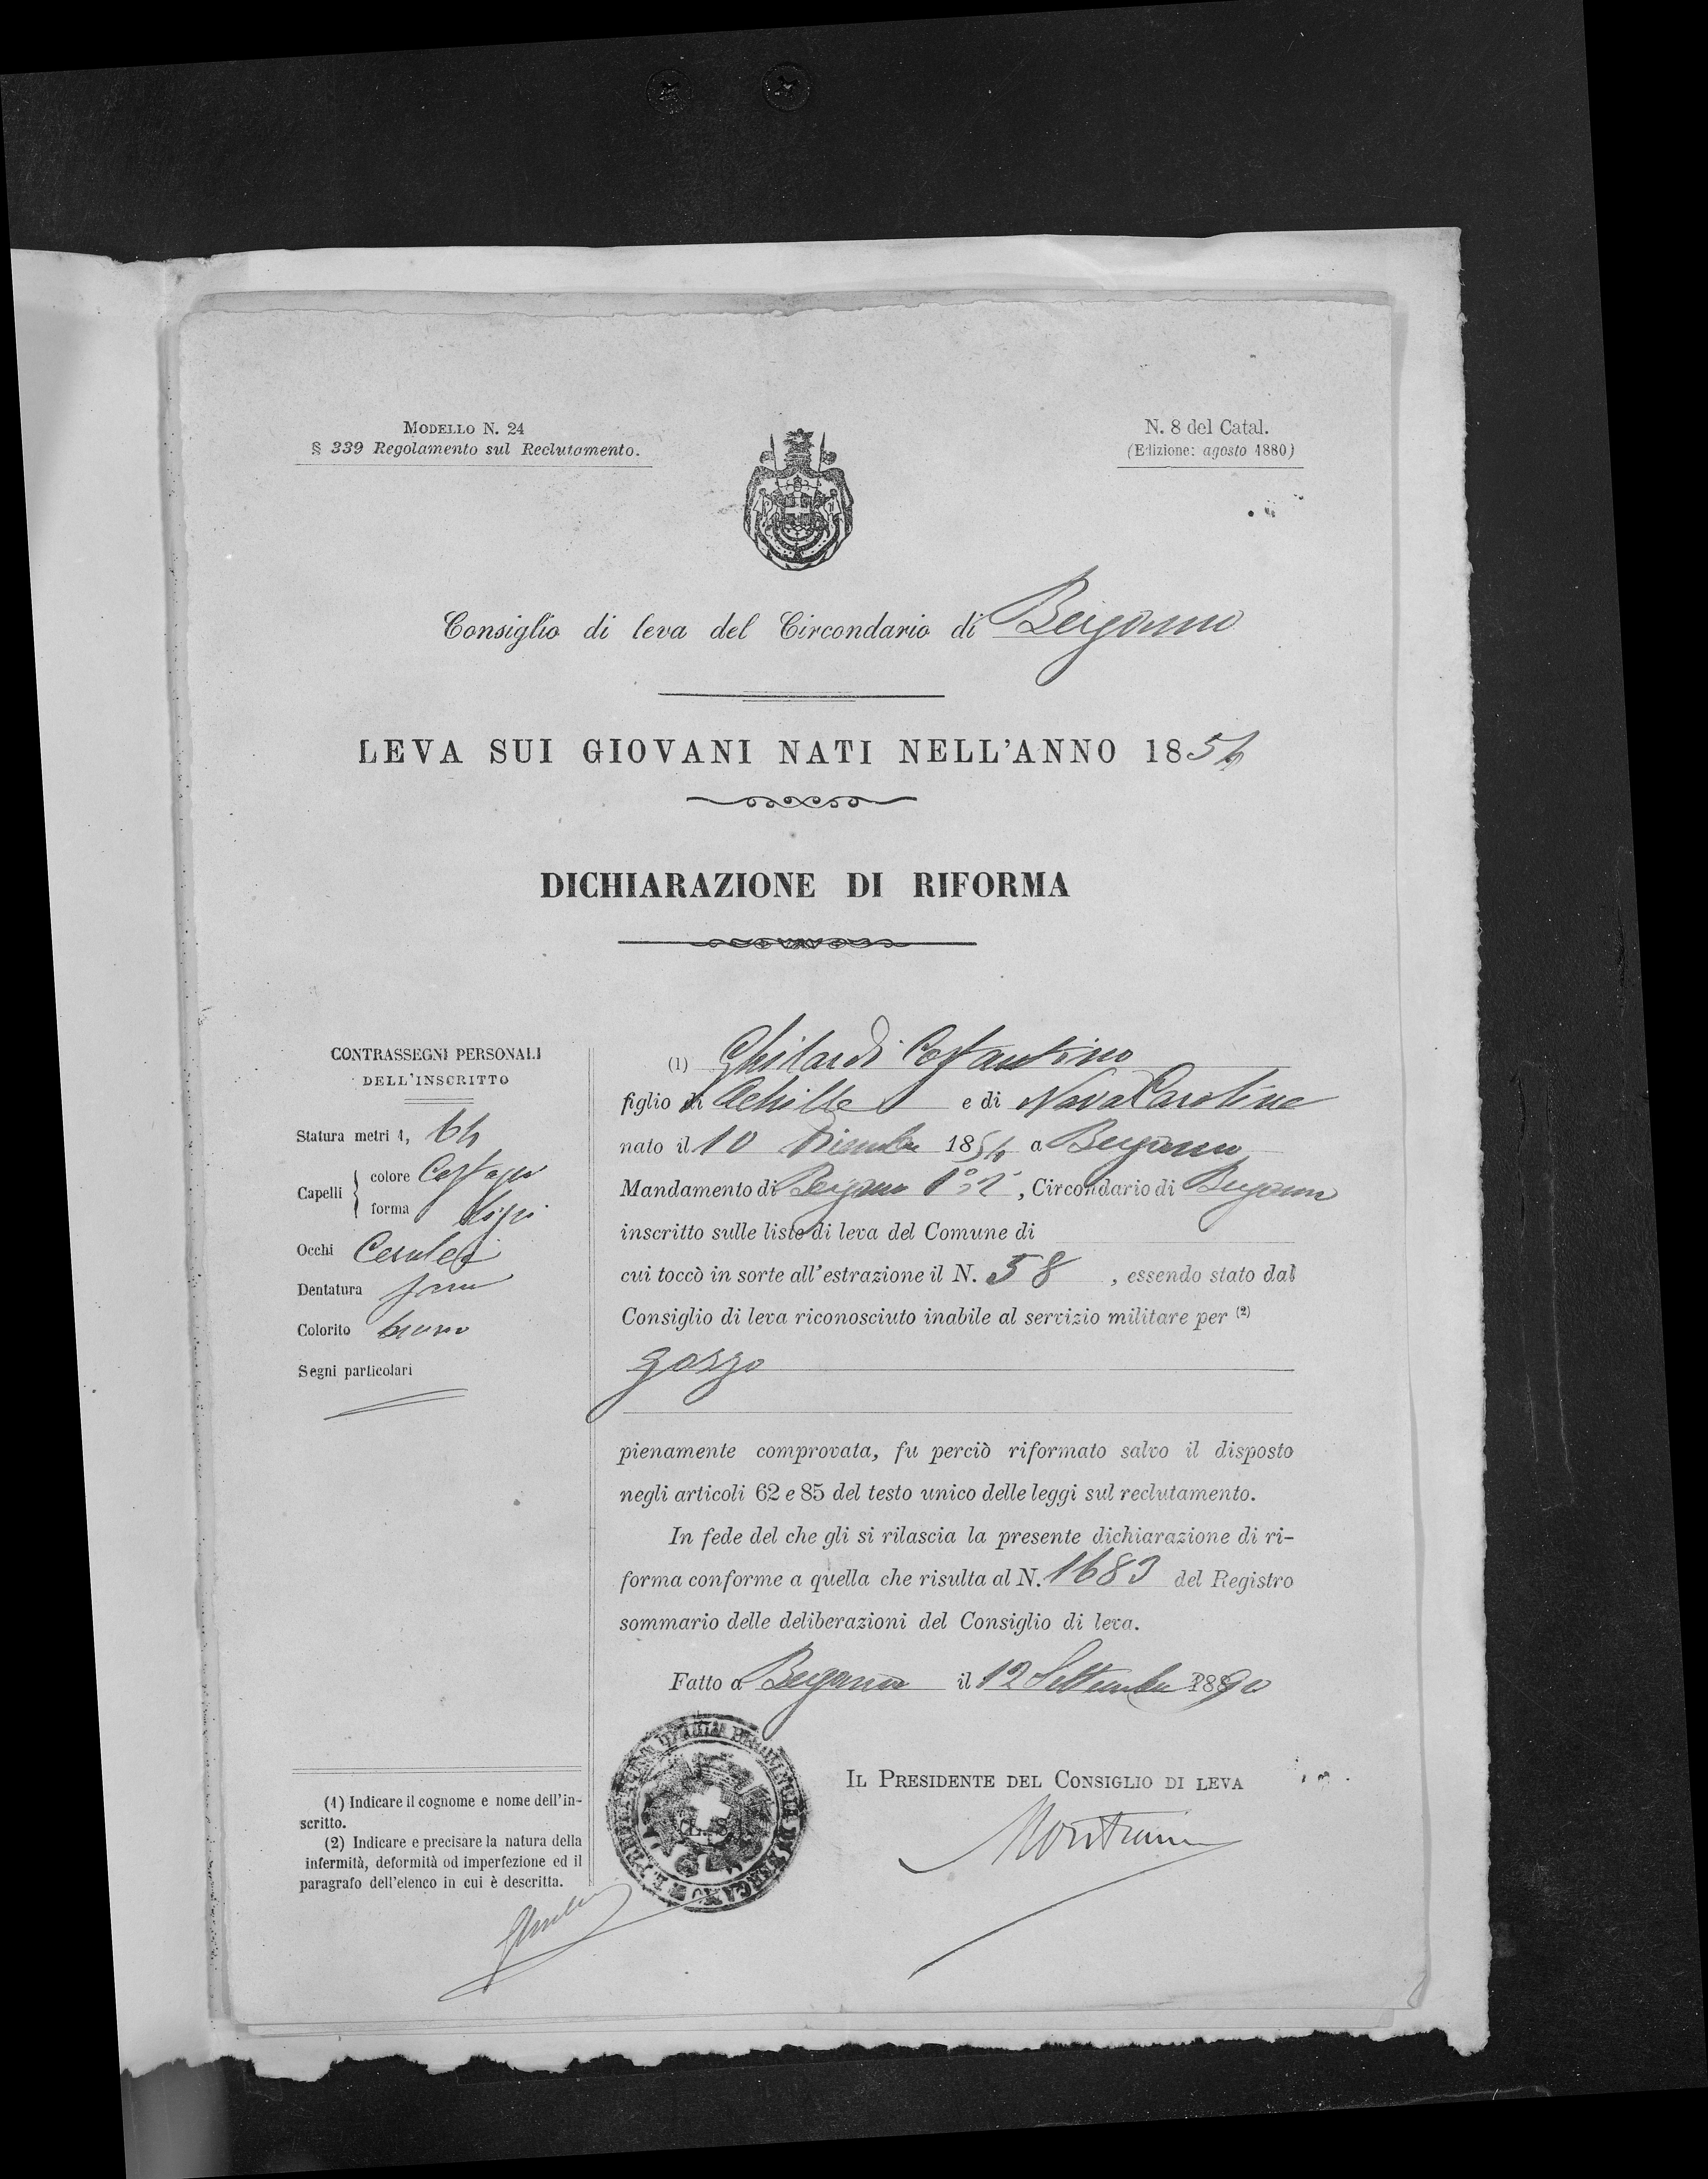 MODELLO N. 24
§ 339 Regolamento sul Reclutamento.
N. 8 del Catal.
(Edizione: agosto 1880)
Consiglio di leva del Circondario di Bergamo
LEVA SUI GIOVANI NATI NELL'ANNO 1854
DICHIARAZIONE DI RIFORMA
CONTRASSEGNI PERSONALI
DELL'INSCRITTO
Statura metri 1, 64
Capelli
colore Castagni
forma Lisci
Occhi Cerulei
Dentatura sana
Colorito bruno
Segni particolari
(1) Indicare il cognome e nome dell'in-
scritto.
(2) Indicare e precisare la natura della
infermità, deformità od imperfezione ed il
paragrafo dell'elenco in cui è descritta.
(1) Ghilardi Costantino
figlio di Achille e di Nava Carolina
nato il 10 1854 a Bergamo
Mandamento di Bergamo 1°, Circondario di Bergamo
inscritto sulle liste di leva del Comune di
cui toccò in sorte all'estrazione il N. 58, essendo stato dal
Consiglio di leva riconosciuto inabile al servizio militare per (2)
gozzo
pienamente comprovata, fu perciò riformato salvo il disposto
negli articoli 62 e 85 del testo unico delle leggi sul reclutamento.
In fede del che gli si rilascia la presente dichiarazione di ri-
forma conforme a quella che risulta al N. 1683 del Registro
sommario delle deliberazioni del Consiglio di leva.
Fatto a Bergamo il 12 Settembre 1890
IL PRESIDENTE DEL CONSIGLIO DI LEVA